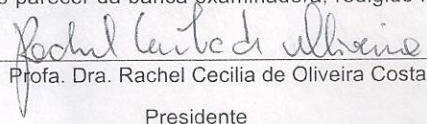 o parecer da banca examinadora, redigido
Rachel Cecilia de Oliveira
Profa. Dra. Rachel Cecilia de Oliveira Costa
Presidente